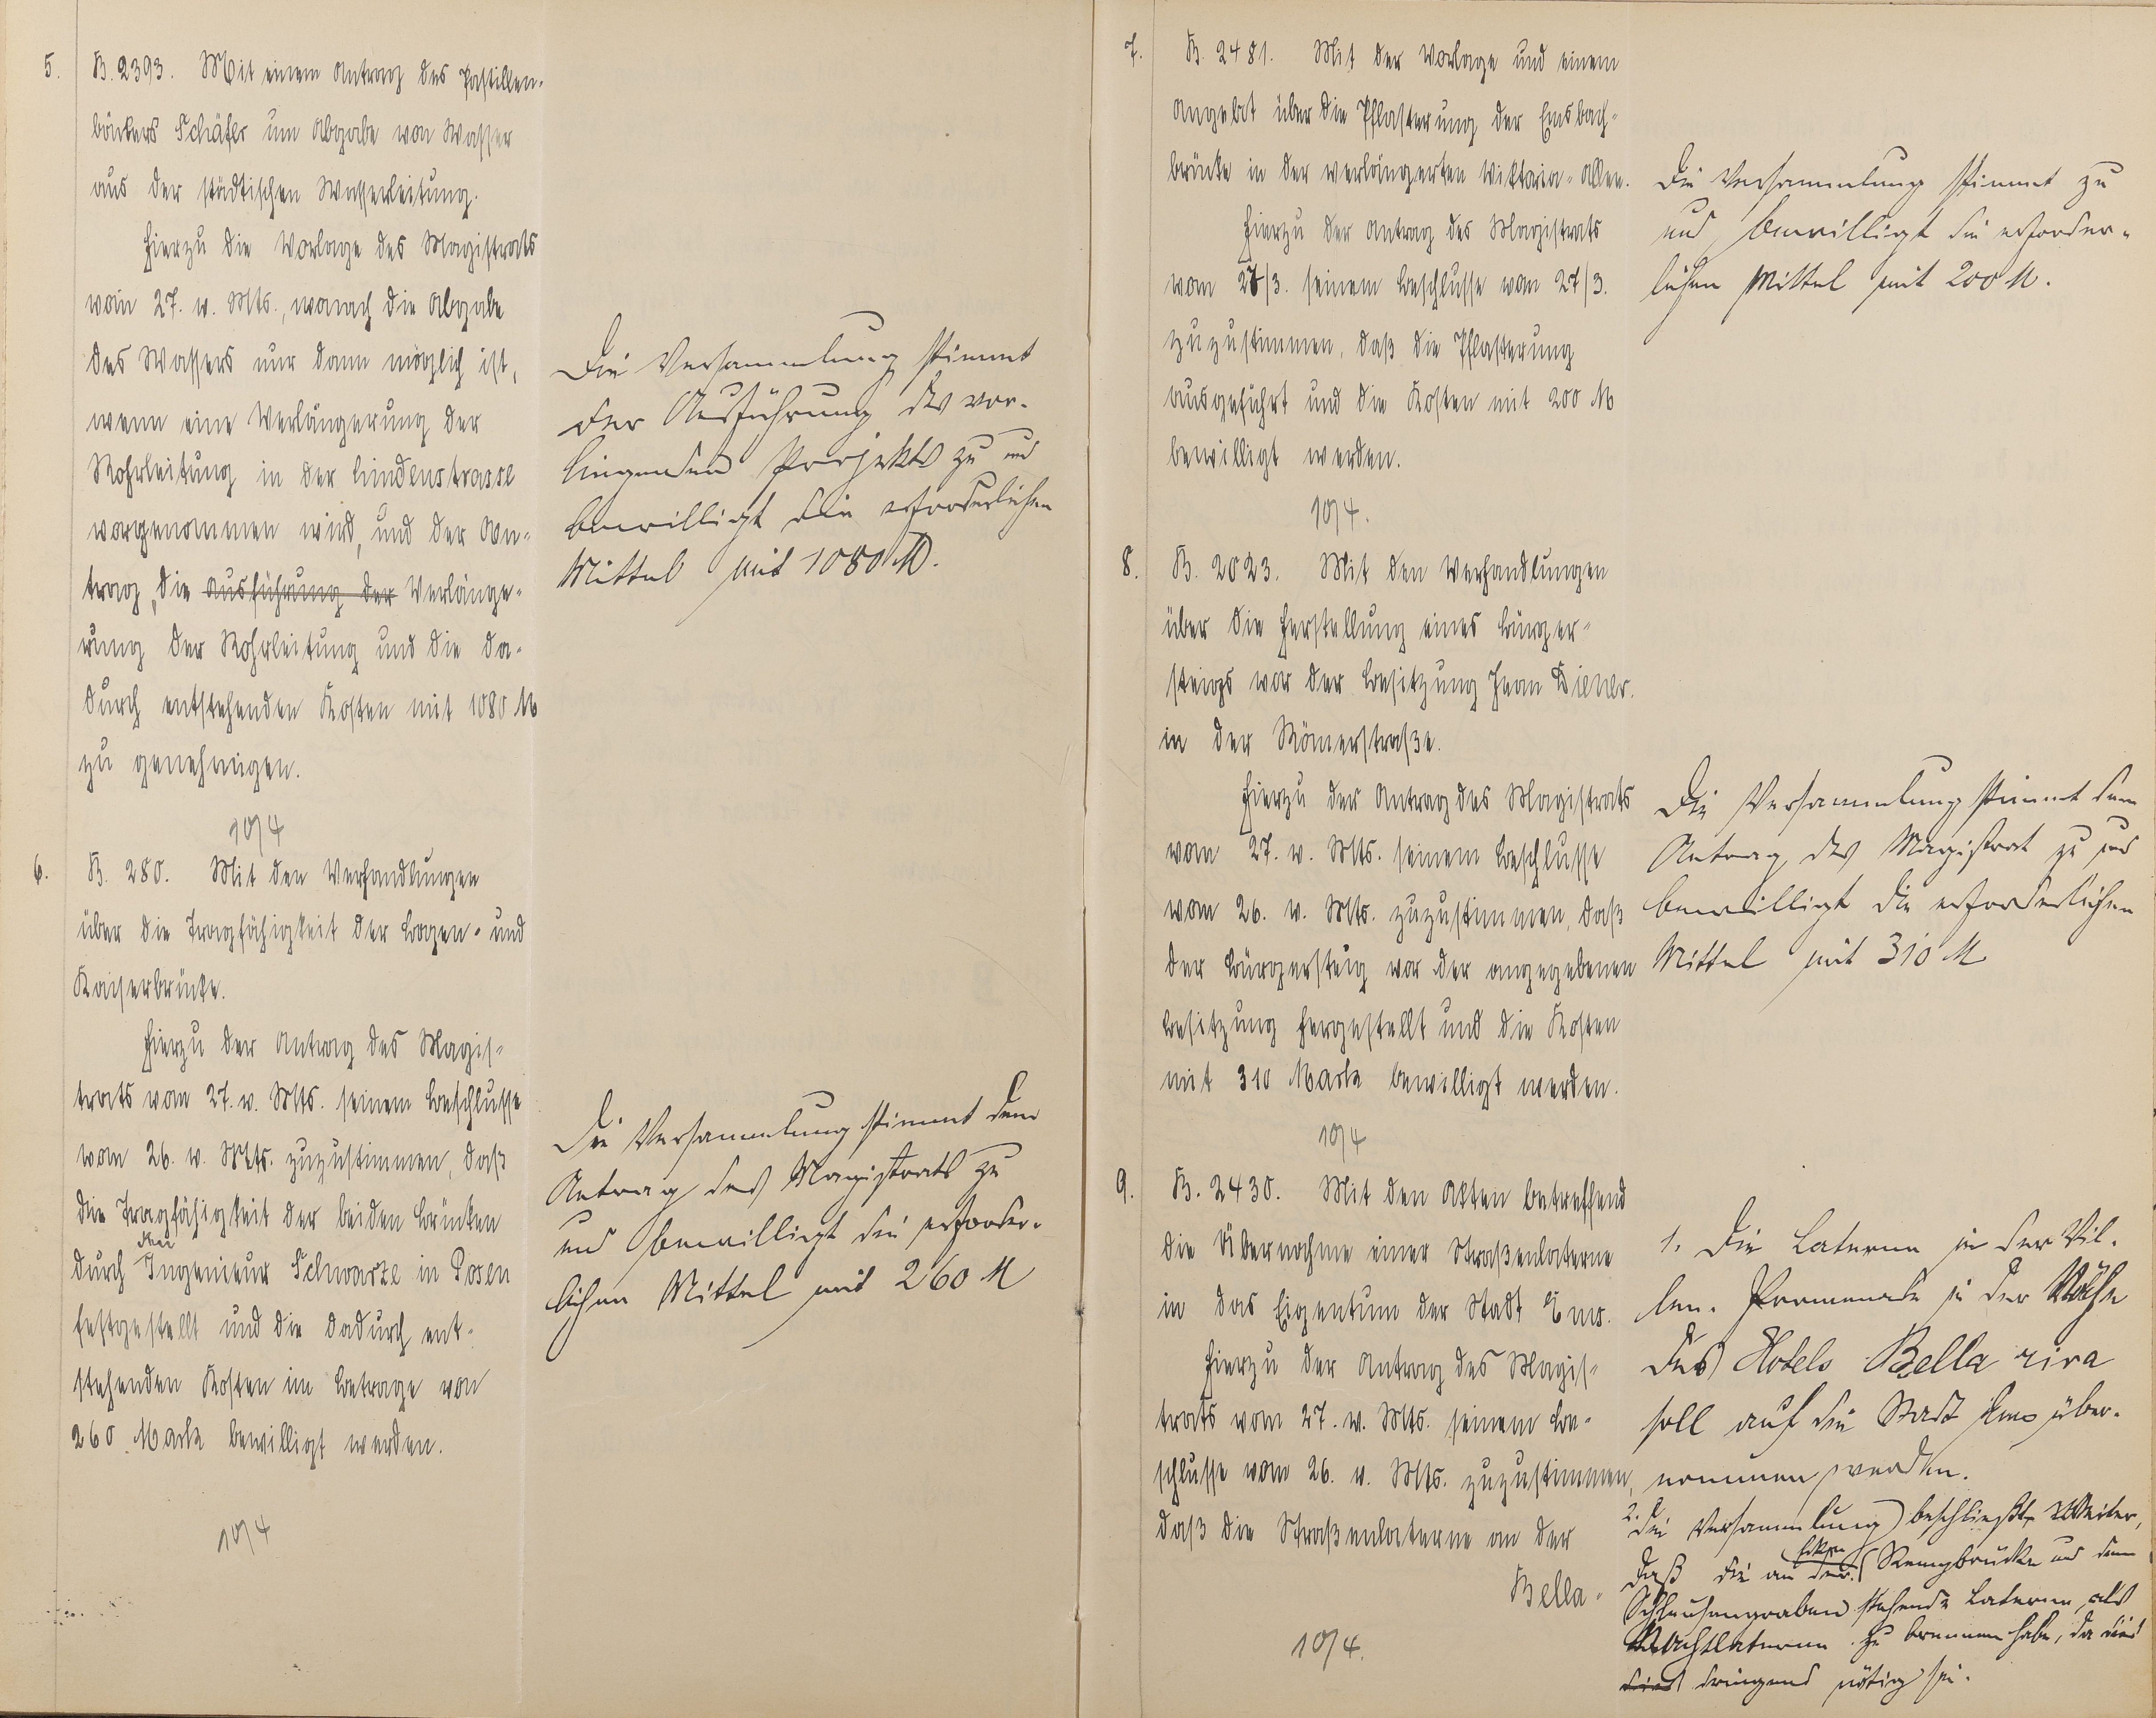 5. B. 2393. Mit einem Antrag des Pastillen-
bäckers Schäfer um Abgabe von Wasser
aus der städtischen Wasserleitung.
Hierzu die Vorlage des Magistrats
vom 27. v. Mts., wonach die Abgabe
des Wassers nur dann möglich ist,
wenn eine Verlängerung der
Rohrleitung in der Lindenstrasse
vorgenommen wird, und der An-
trag, die Ausführung der Verlänge-
rung der Rohrleitung und die da-
durch entstehenden Kosten mit 1080 M
zu genehmigen.
10/4
Die Versammlung stimmt
der Ausführung des vor-
liegenden Projekts zu und
bewilligt die erforderlichen
Mittel mit 1080 M.
6. B. 280. Mit den Verhandlungen
über die Tragfähigkeit der Bogen- und
Kaiserbrücke.
Hierzu der Antrag des Magis-
trats vom 27. v. Mts. seinem Beschlusse
vom 26. v. Mts. zuzustimmen, daß
die Tragfähigkeit der beiden Brücken
den
durch Ingenieur Schwarze in Posen
festgestellt und die dadurch ent-
stehenden Kosten im Betrage von
260 Mark bewilligt werden.
10/4
Die Versammlung stimmt dem
Antrag des Magistrats zu
und bewilligt die erforder-
lichen Mittel mit 260 M
7. B. 2481. Mit der Vorlage und einem
Angebot über die Pflasterung der Emsbach-
brücke in der verlängerten Viktoria-Allee.
Hierzu der Antrag des Magistrats
vom 27/3. seinem Beschlusse vom 27/3.
zuzustimmen, daß die Pflasterung
ausgeführt und die Kosten mit 200 M
bewilligt werden.
10/4.
Die Versammlung stimmt zu
und bewilligt die erforder-
lichen Mittel mit 200 M.
8. B. 2023. Mit den Verhandlungen
über die Herstellung eines Bürger-
steigs vor der Besitzung Jean Diener.
in der Römerstraße.
Hierzu der Antrag des Magistrats
vom 27. v. Mts. seinem Beschlusse
vom 26. v. Mts. zuzustimmen, daß
der Bürgersteig vor der angegebenen
Besitzung hergestellt und die Kosten
mit 310 Mark bewilligt werden.
10/4
Die Versammlung stimmt dem
Antrag des Magistrat zu und
bewilligt die erforderlichen
Mittel mit 310 M
9. B. 2430. Mit den Akten betreffend
die Übernahme einer Straßenlaterne
in das Eigentum der Stadt Ems.
Hierzu der Antrag des Magis-
trats vom 27. v. Mts. seinem Be-
schlusse vom 26. v. Mts. zuzustimmen,
daß die Straßenlaterne an der
Bella-
10/4.
1. Die Laterne in der Vil-
len-Promenade in der Nähe
des Hotels Bella riva
soll auf die Stadt Ems über-
nommen werden.
2. Die Versammlung beschließt weiter,
daß die an der Remybrücke und dem
Schleusengraben stehende Laterne als
Nachtlaterne zu brennen habe, da dies
dies dringend nötig sei.